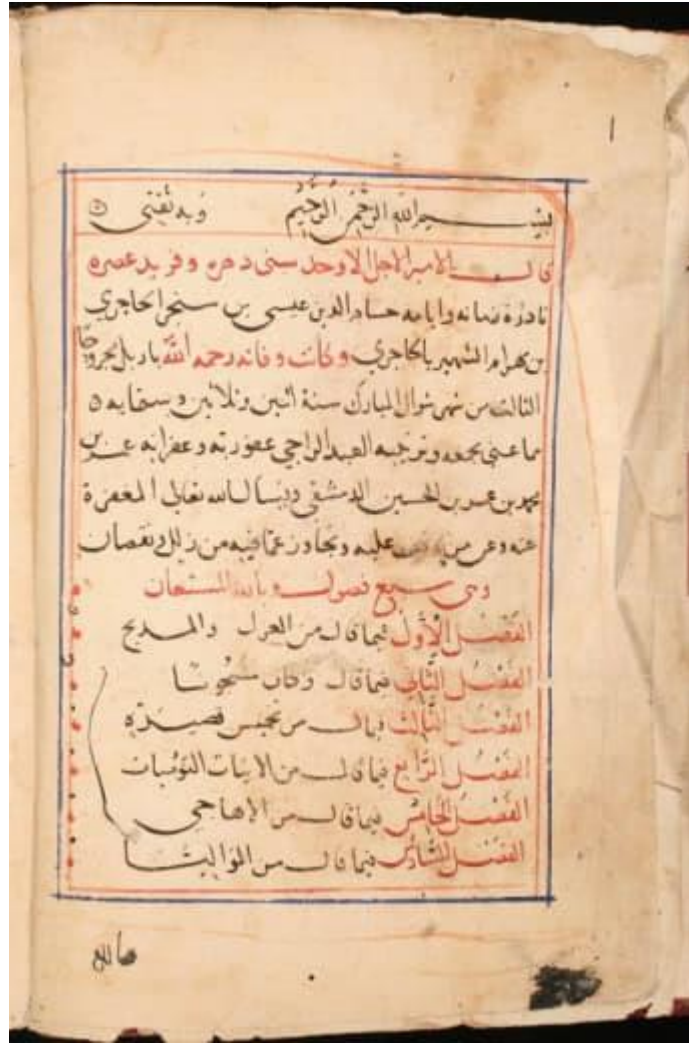 ١
بسم الله الرحمن الرحيم وبه ثقتي
قال الامير الاجل الاوحد سنى دهره وفريد عصره
نادرة زمانه وايامه حسام الدين عيسى بن سنجر الحاجري
بن بهرام الشهير بالحاجري وكانت وفاته رحمه الله باربل مجروحا
الثالث من شهر شوال المبارك سنة اثنين وثلاثين وستمايه
مما عنى بجمعه وترتيبه العبد الراجي عفو ربه وغفرانه عمر بن
محمد بن عمر بن الحسين الدمشقي ويسال الله تعالى المغفرة
عنه وعن من عليه وتجاوز عما فيه من زلل ونقصان
وهي سبع فصول وبالله المستعان
الفصل الاول فيما قال من الغزل والمديح
الفصل الثاني فيما قال وكان مسجونا
الفصل الثالث فيما قال من تخميس قصيدة
الفصل الرابع فيما قال من الابيات
الفصل الخامس فيما قال من الاهاجي
الفصل السادس فيما قال من المواليا